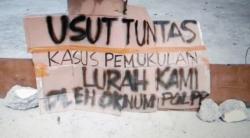 USUT TUNTAS
KASUS PEMUKULAN
LURAH KAMI
OLEH OKNUM POL PP